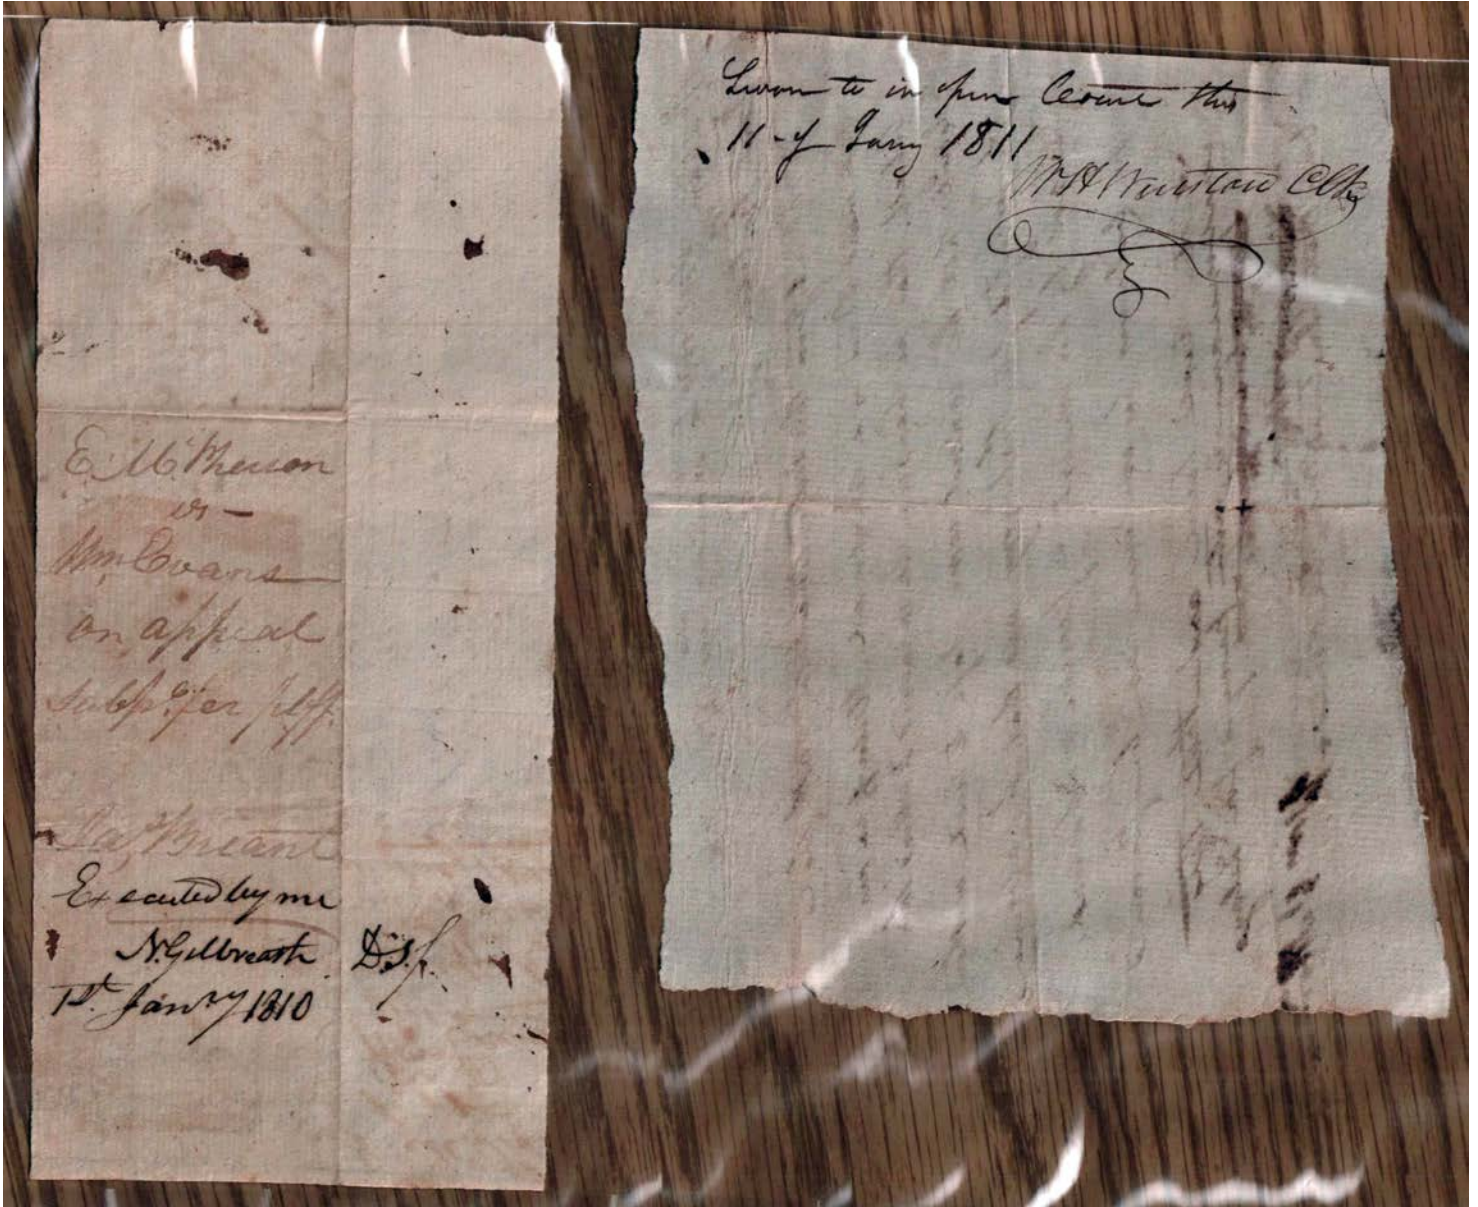 E. McPherson
vs —
Wm Evans
on appeal
subpa. for plff.
Jas Breant
Executed by me
N. Gilbreath D.Sf.
1st. Janry 1810
Sworn to in open Court this
11 - of Jany 1811
W H Winston Clk